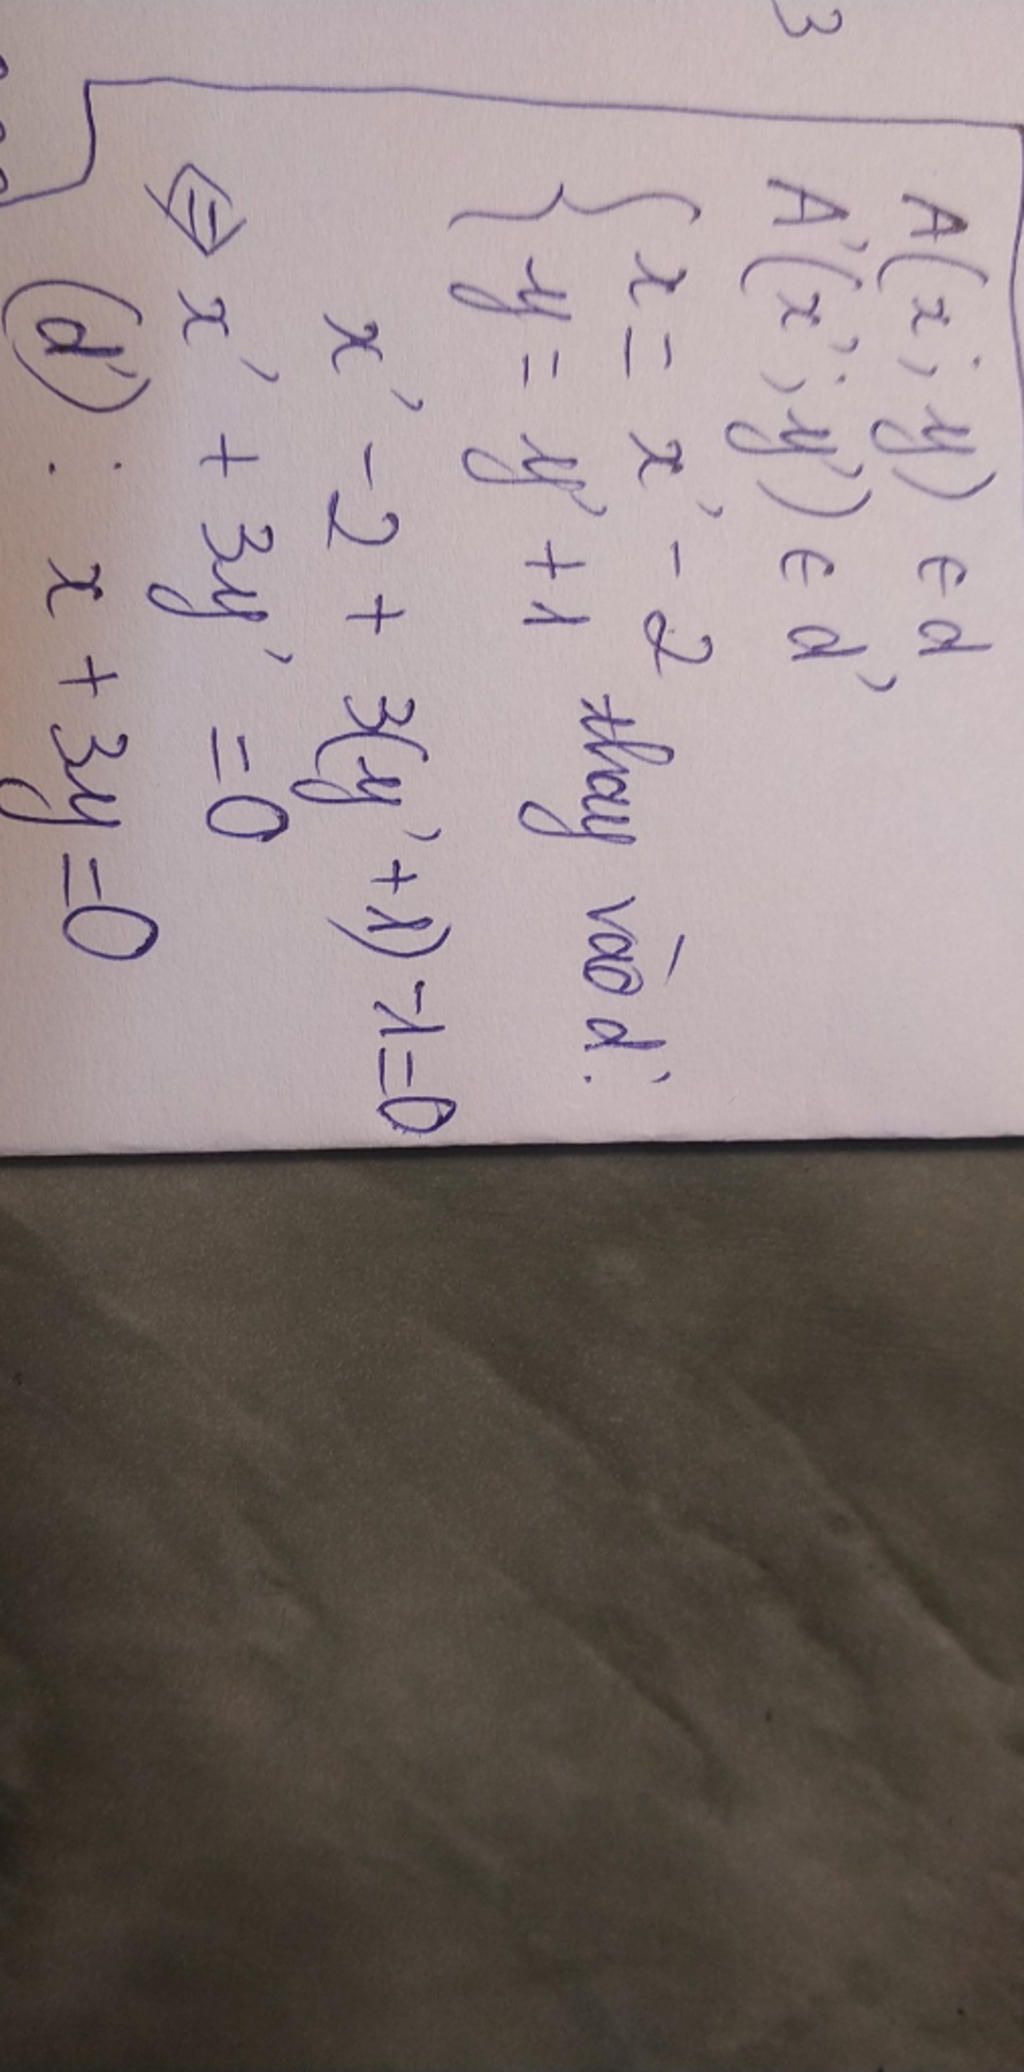 3
A(x; y) ∈ d
A'(x'; y') ∈ d'
{ x = x' - 2
{ y = y' + 1 thay vào d:
x' - 2 + 3(y' + 1) - 1 = 0
⇔ x' + 3y' = 0
(d'): x + 3y = 0